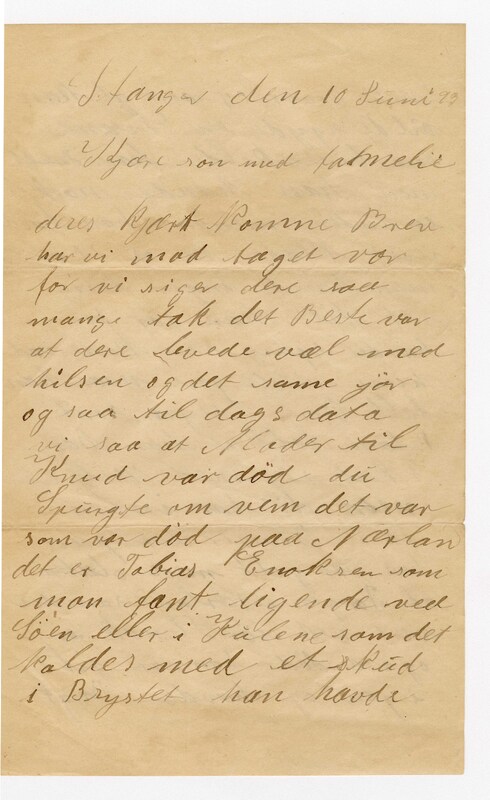 Stanger den 10 Juni 93
Kjære søn med familie
deres kjært komne Brev
har vi mod taget vor
for vi siger dere saa
mange tak det Beste var
at dere levede væl med
hilsen og det same jør
og saa til dags data
vi saa at Moder til
Knud var død du
Spurgte om vem det var
som var død paa Nærlan
det er Tobias Enoksen som
man fant ligende ved
Søen eller i Kulene som det
kaldes med et skud
i Brystet han havde